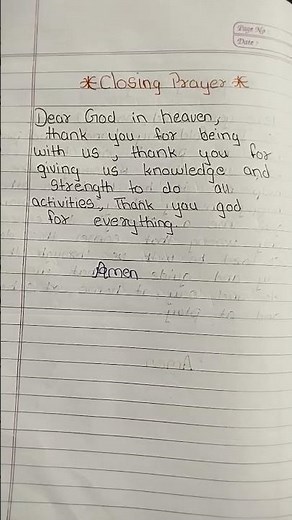 Page No:
Date:
*Closing Prayer*
Dear God in heaven,
thank you for being
with us, thank you for
giving us knowledge and
strength to do all
activities, Thank you god
for everything.
Amen